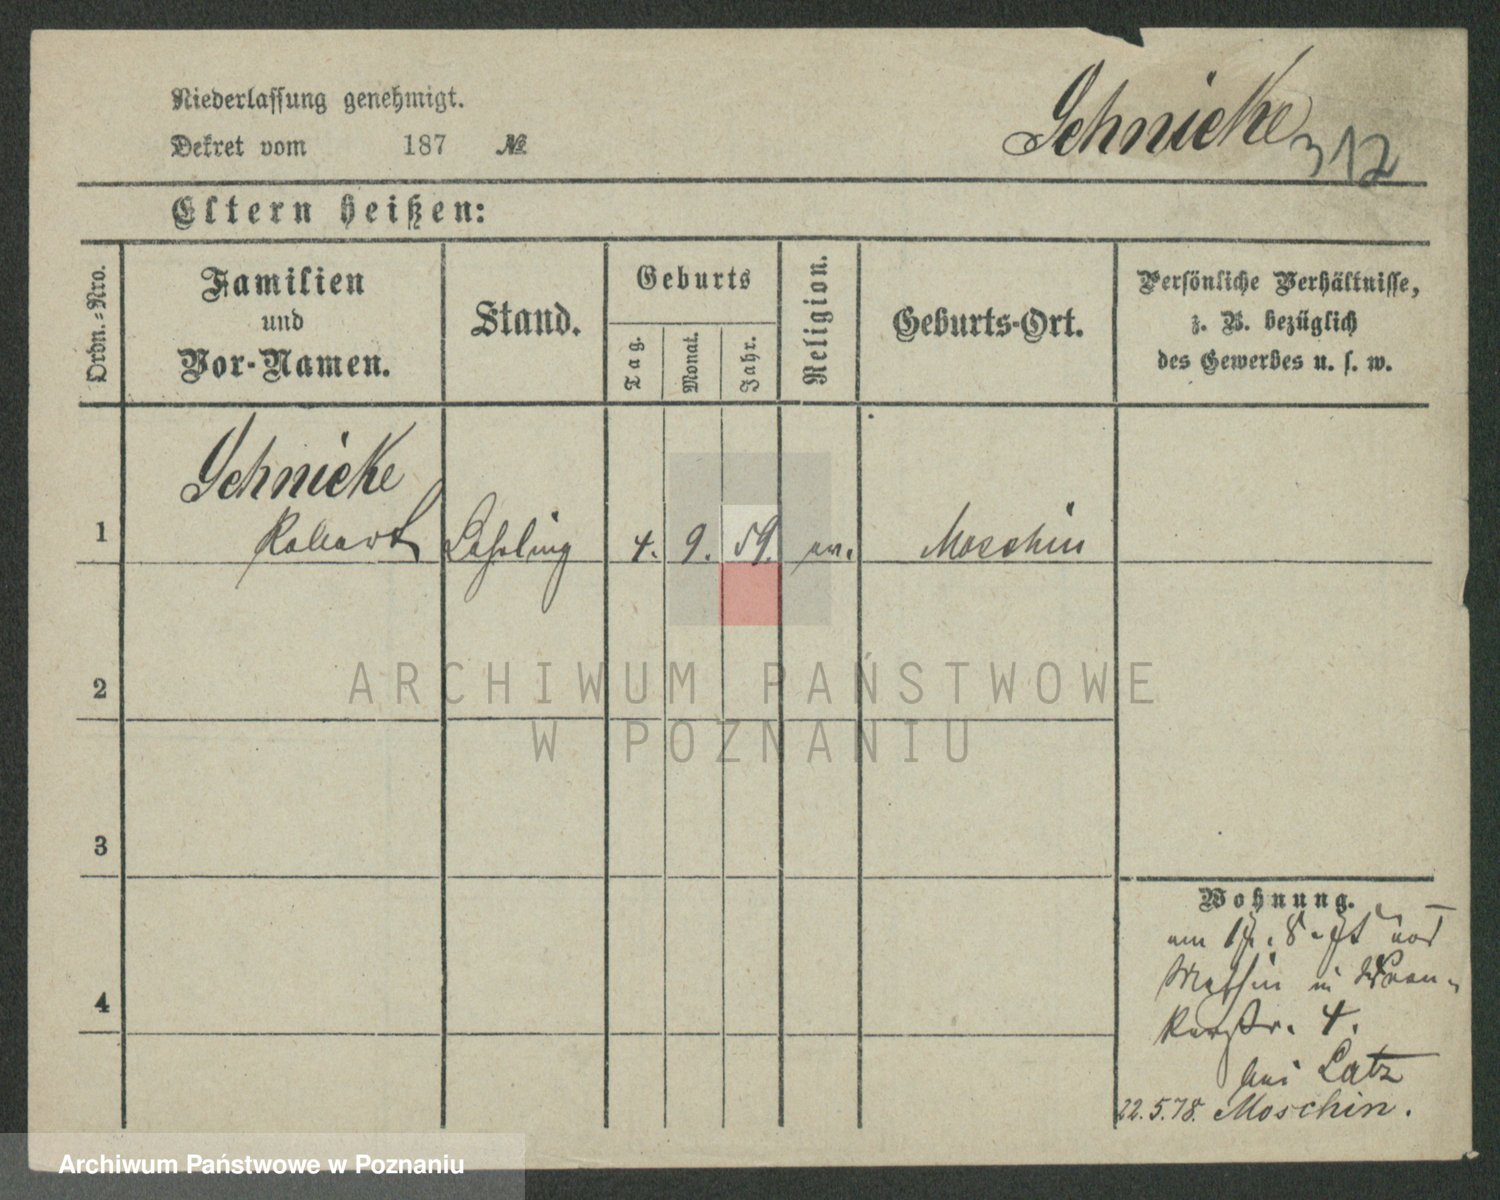 Schnicke
312
Niederlassung genehmigt.
Dekret vom 187 №
Eltern heißen:
Ordn.-Nro.
Familien
und
Vor-Namen.
Stand.
Geburts
Tag.
Monat.
Jahr.
Religion.
Geburts-Ort.
Persönliche Verhältnisse,
z. B. bezüglich
des Gewerbes u. s. w.
Schnicke
1 Robert Lehrling 4. 9. 59. ev. Moschin
2
3
4
Wohnung.
am 8.
Moschin in
4.
bei Latz
22.5.78. Moschin.
ARCHIWUM PAŃSTWOWE
W POZNANIU
Archiwum Państwowe w Poznaniu